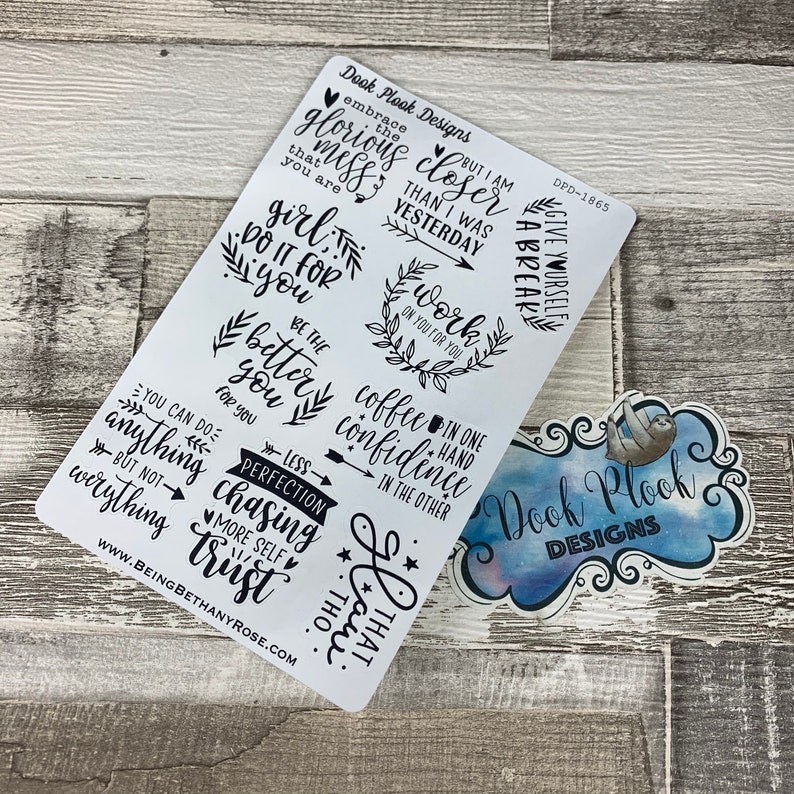 Dook Plook Designs
DPD-1865
embrace
the
glorious
mess
that
you are
BUT I AM
closer
THAN I WAS
YESTERDAY
GIVE YOURSELF
A BREAK
girl,
DO IT FOR
you
work
ON YOU FOR YOU
BE THE
better
you
FOR YOU
coffee IN ONE
HAND
confidence
IN THE OTHER
YOU CAN DO
anything
BUT NOT
everything
LESS
PERFECTION
chasing
MORE SELF
trust
THAT
glow
THO
www.BeingBethanyRose.com
Dook Plook
DESIGNS